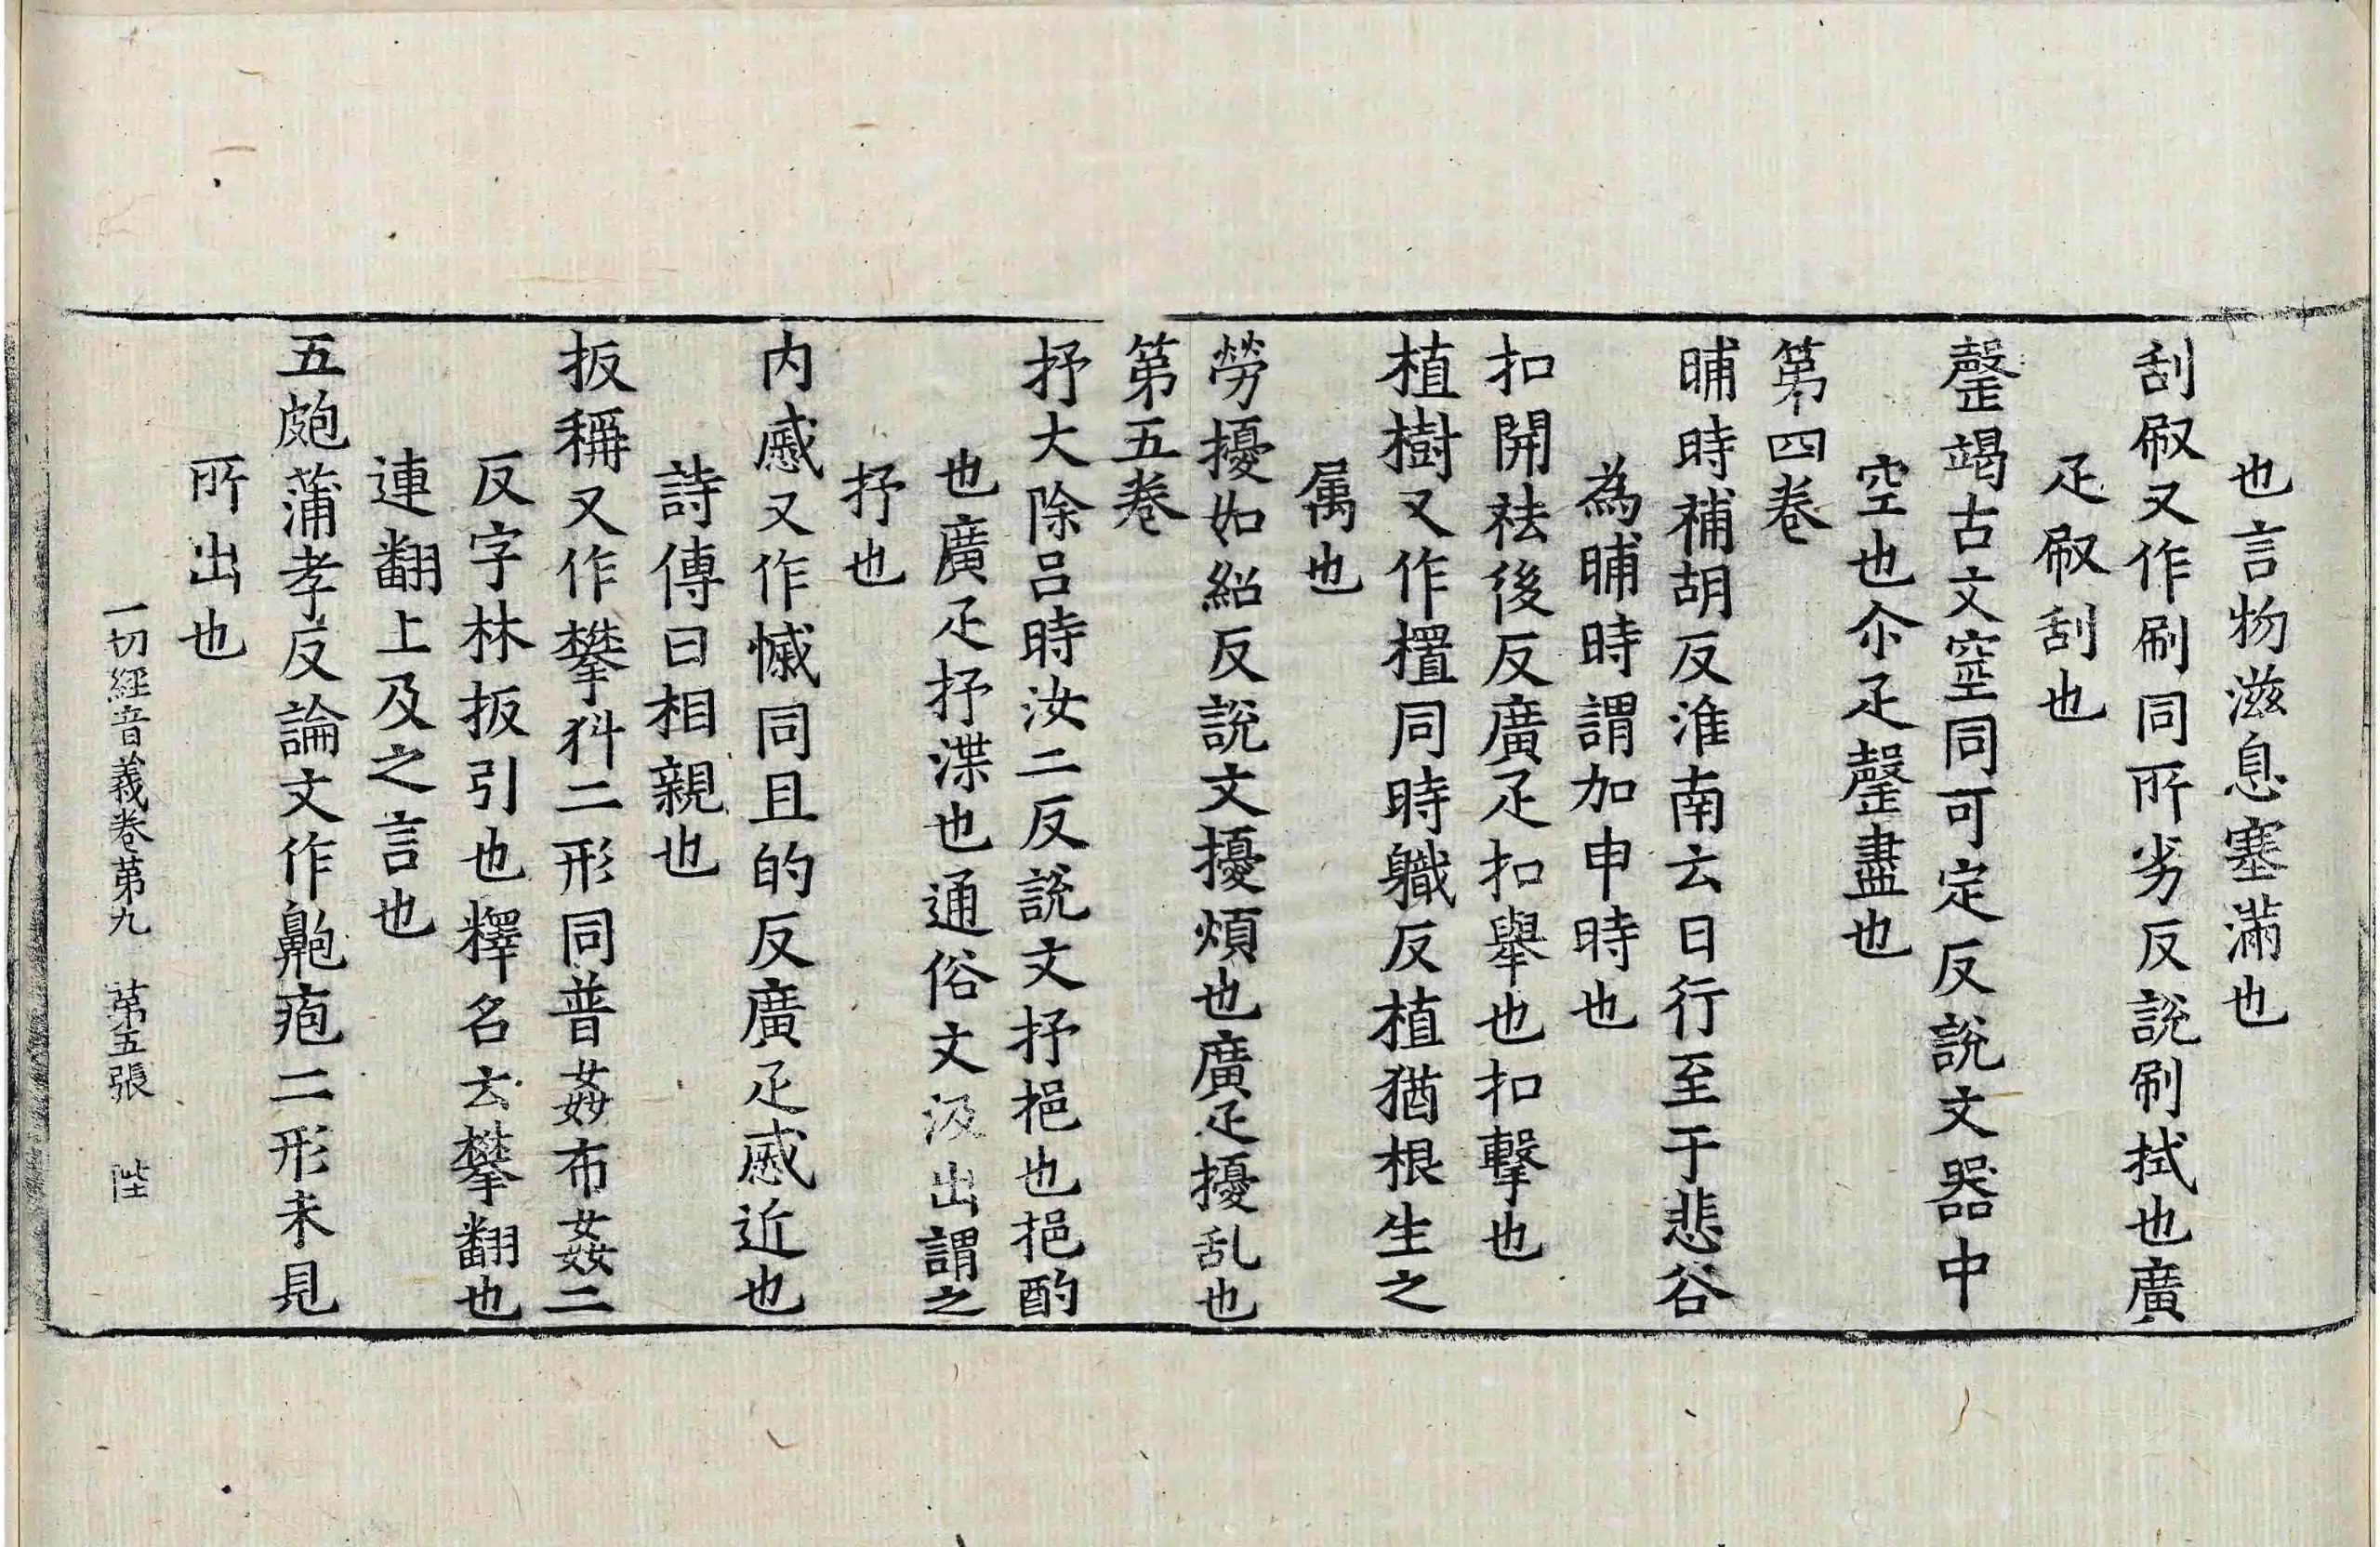 也言物滋息塞滿也
刮㕞又作刷同所劣反說刷拭也廣
疋㕞刮也
罄竭古文窒同可定反說文器中
空也尒疋罄盡也
苐四卷
晡時補胡反淮南云日行至于悲谷
為晡時謂加申時也
扣開祛後反廣疋扣舉也扣擊也
植樹又作㯰同時軄反植猶根生之
属也
勞擾如紹反說文擾煩也廣疋擾乱也
苐五卷
抒大除呂時汝二反說文抒挹也挹酌
也廣疋抒渫也通俗文汲出謂之
抒也
内慼又作慽同且的反廣疋慼近也
詩傳曰相親也
扳稱又作攀㸞二形同普姦布姦二
反字林扳引也釋名云攀翻也
連翻上及之言也
五皰蒲孝反論文作鼥疱二形未見
所出也
一切經音義卷苐九 苐五張 陛